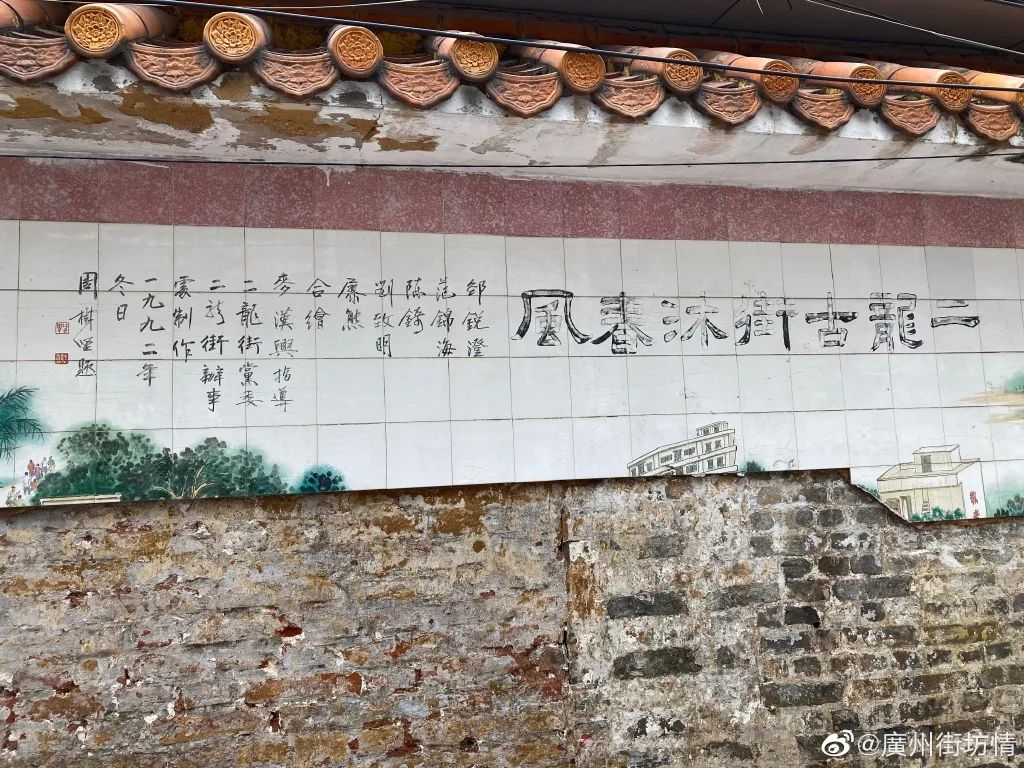 二龍古街沐春風
邹銳澄
范錦海
陈錡
劉致明
康熊
合繪
麥漢興指導
二龍街黨委
二龙街辦事
處制作
一九九二年
冬日
周樹坚题
@廣州街坊情